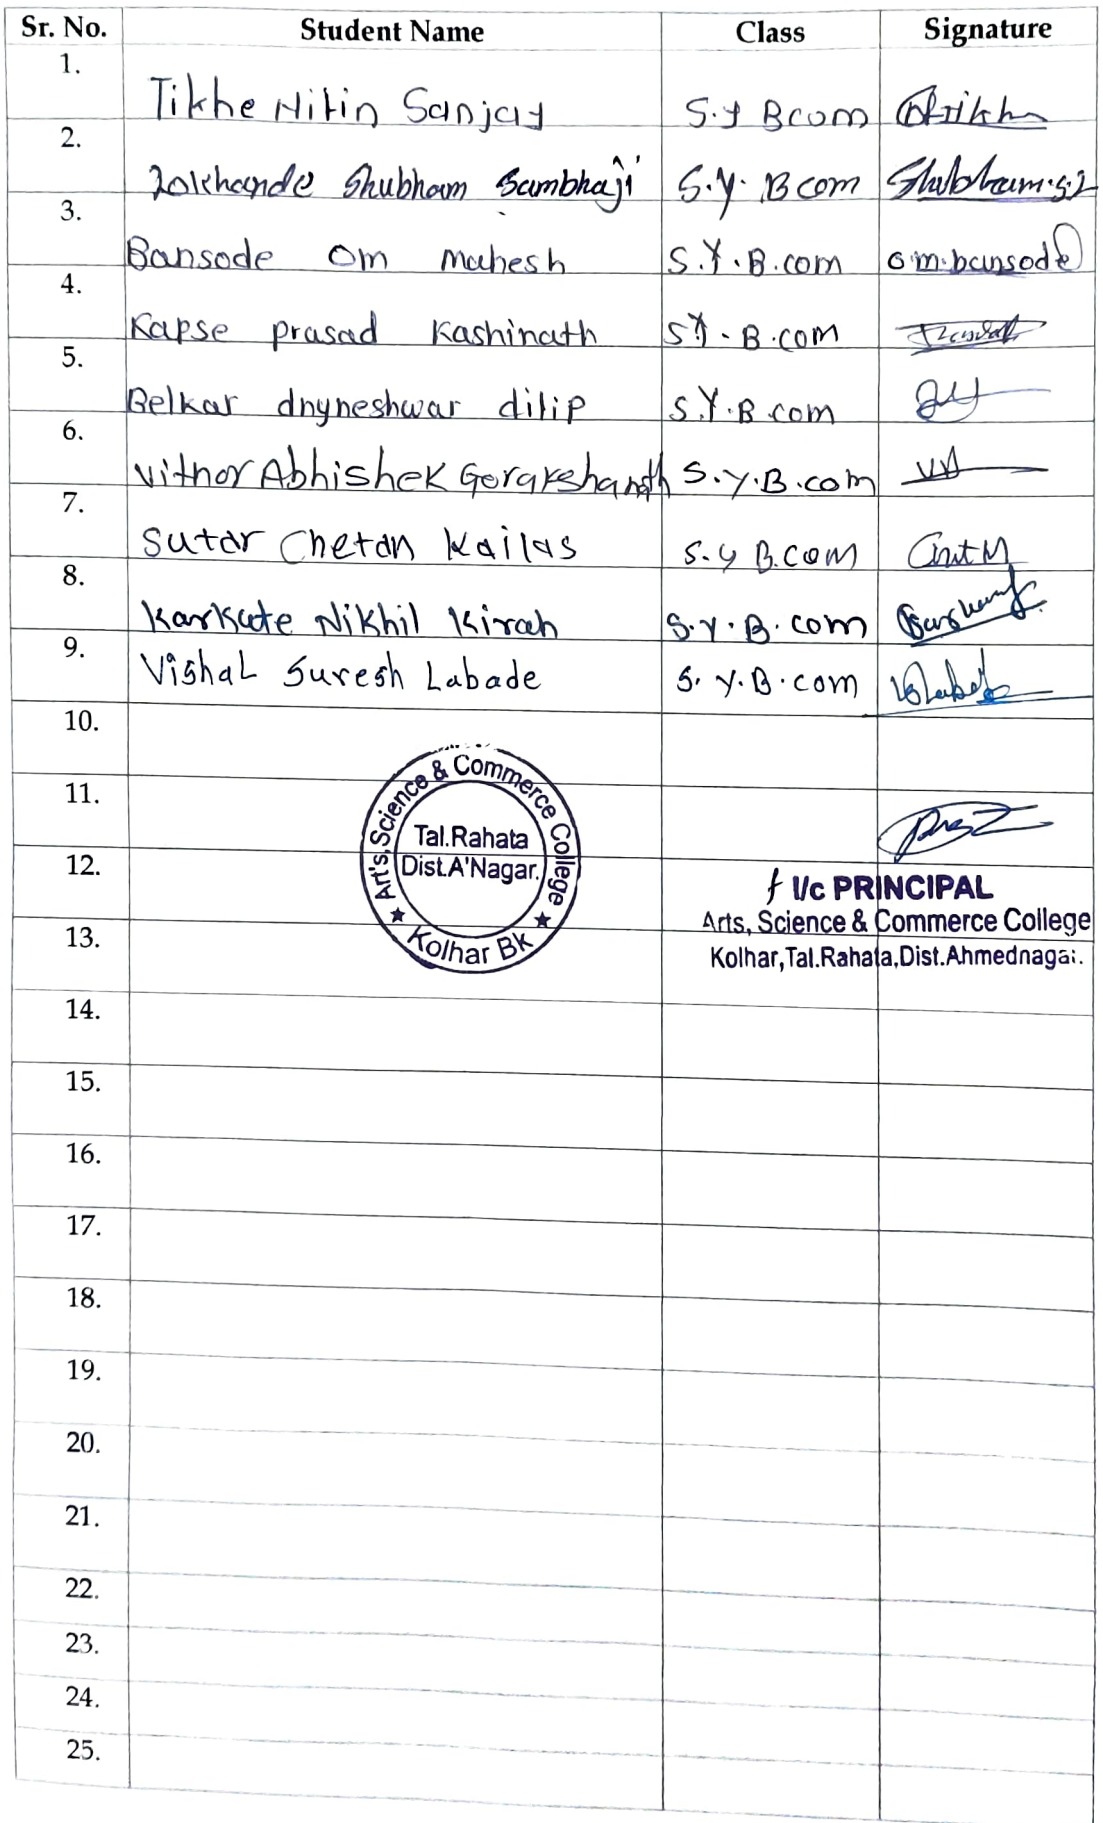 Sr. No. Student Name Class Signature
1. Tikhe Nitin Sanjay S.Y Bcom
2. Lokhande Shubham Sambhaji S.Y. Bcom Shubham.S.L
3. Bansode Om mahesh S.Y.B.com o.m.bansode
4. Kapse prasad Kashinath SY.B.com
5. Belkar dnyneshwar dilip S.Y.B.com
6. Vitnor Abhishek Gorakshanath S.Y.B.com VA
7. Sutar Chetan Kailas S.y B.com
8. Karkute Nikhil Kiran S.Y.B.com
9. Vishal Suresh Labade S.Y.B.com
10.
11.
12.
13.
Art's, Science & Commerce College
Tal.Rahata
Dist.A'Nagar.
★ Kolhar Bk ★
I/c PRINCIPAL
Arts, Science & Commerce College
Kolhar,Tal.Rahata,Dist.Ahmednagar.
14.
15.
16.
17.
18.
19.
20.
21.
22.
23.
24.
25.